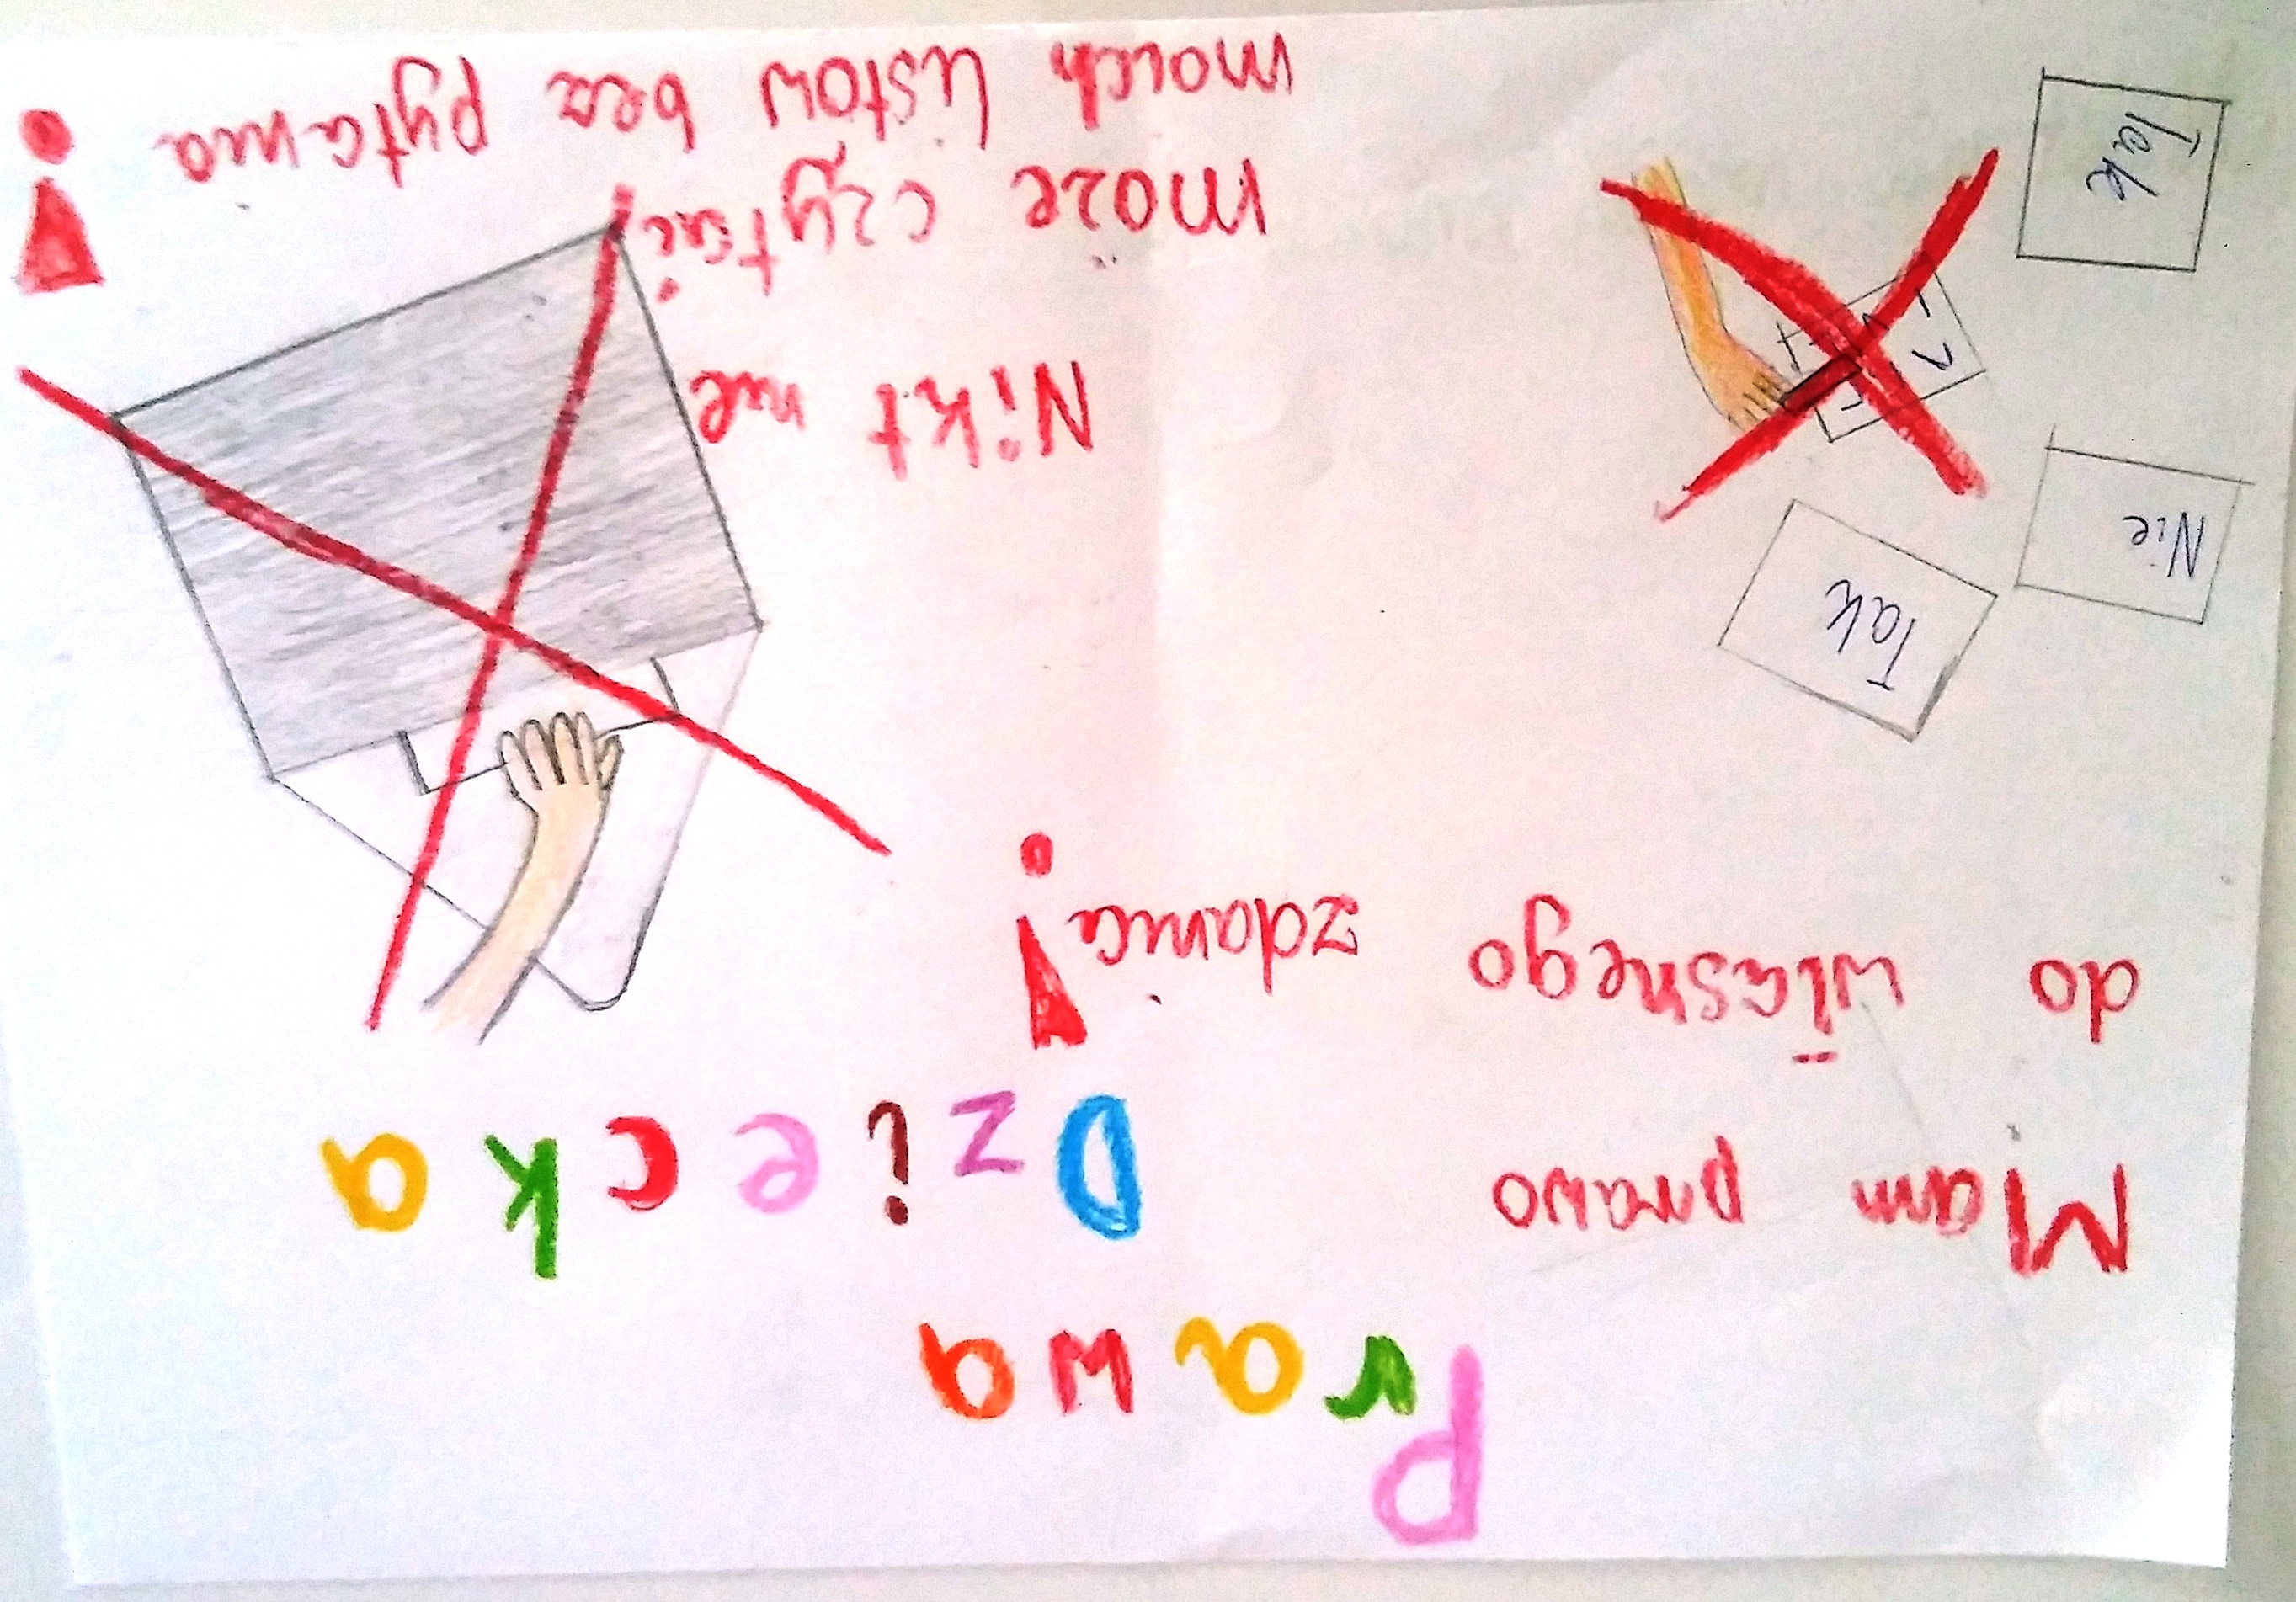 Prawa
Dziecka
Mam prawo
do własnego zdania!
Tak
Nie
Tak
Nikt nie
może czytać
moich listow bez pytania!